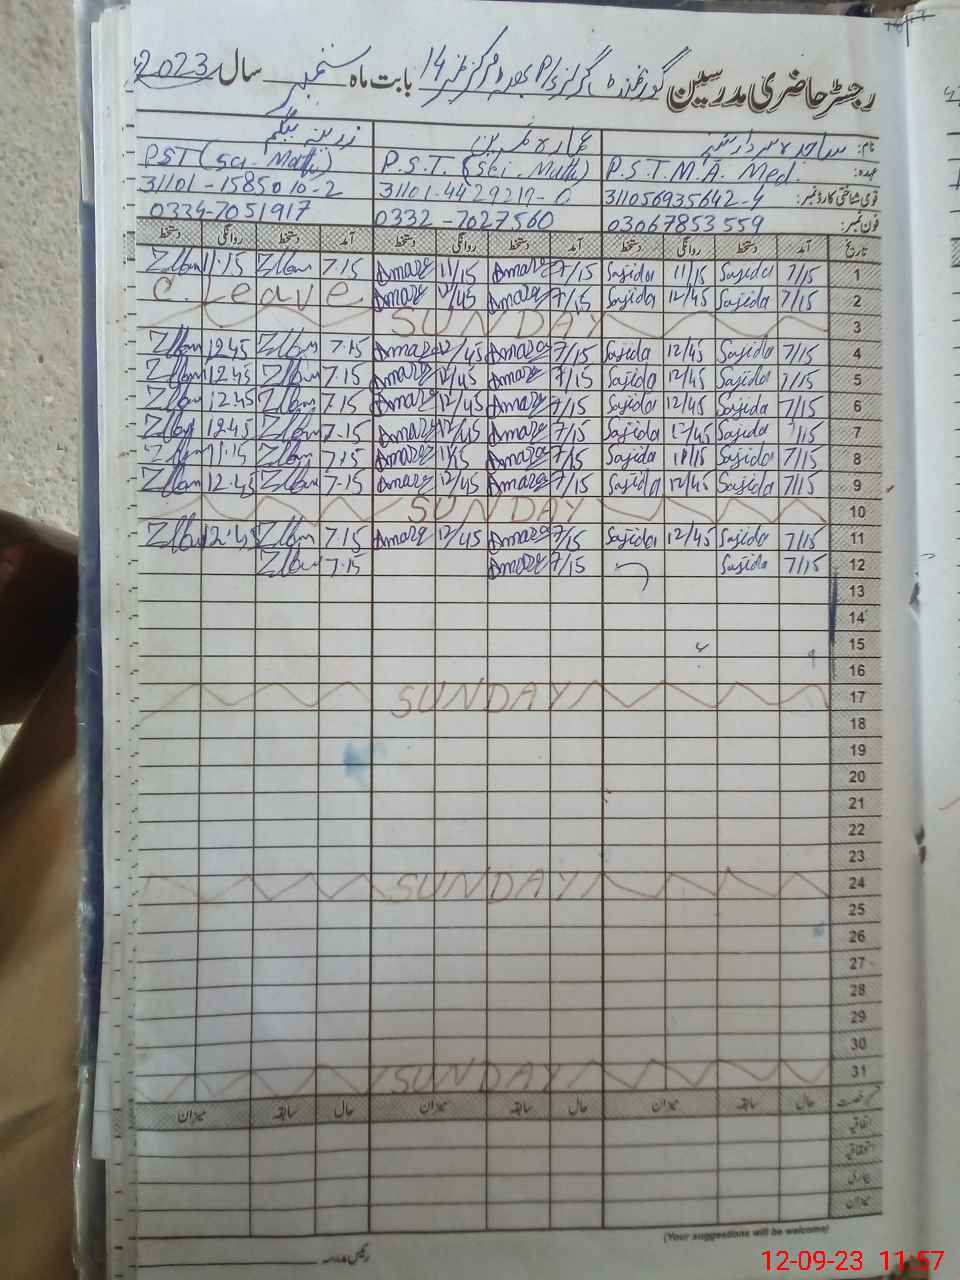 رجسٹر حاضری مدرسین گورنمنٹ گرلز P/S مرکز نمبر 14 بابت ماہ ستمبر سال 2023
نام: ساجدہ سردار عمارہ زرینہ بیگم
عہدہ: P.S.T.M.A. Med. P.S.T. (Sci-Math) PST (Sci-Math)
قومی شناختی کارڈ نمبر: 311056935642-4 31101-4429219-0 31101-1585010-2
فون نمبر: 03067853559 0332-7027560 0334-7051917
تاریخ آمد دستخط روانگی دستخط آمد دستخط روانگی دستخط آمد دستخط روانگی دستخط
1 7/15 Sajida 11/15 Sajida 7/15 Amara 11/15 Amara 7.15 11.15
2 7/15 Sajida 12/45 Sajida 7/15 Amara 12/45 Amara C. Leave
3 SUNDAY
4 7/15 Sajida 12/45 Sajida 7/15 Amara 12/45 Amara 7.15 12.45
5 7/15 Sajida 12/45 Sajida 7/15 Amara 12/45 Amara 7.15 12.45
6 7/15 Sajida 12/45 Sajida 7/15 Amara 12/45 Amara 7.15 12.45
7 7/15 Sajida 12/45 Sajida 7/15 Amara 12/45 Amara 7.15 12.45
8 7/15 Sajida 11/15 Sajida 7/15 Amara 11/15 Amara 7.15 11.15
9 7/15 Sajida 12/45 Sajida 7/15 Amara 12/45 Amara 7.15 12.45
10 SUNDAY
11 7/15 Sajida 12/45 Sajida 7/15 Amara 12/45 Amara 7.15 12.45
12 7/15 Sajida 7/15 Amara 7.15
13
14
15
16
17 SUNDAY
18
19
20
21
22
23
24 SUNDAY
25
26
27
28
29
30
31 SUNDAY
رخصت حال سابقہ میزان حال سابقہ میزان حال سابقہ میزان
اتفاقیہ
استحقاقیہ
بیماری
میزان
(Your suggestions will be welcome)
رئیس مدرسہ
12-09-23 11:57